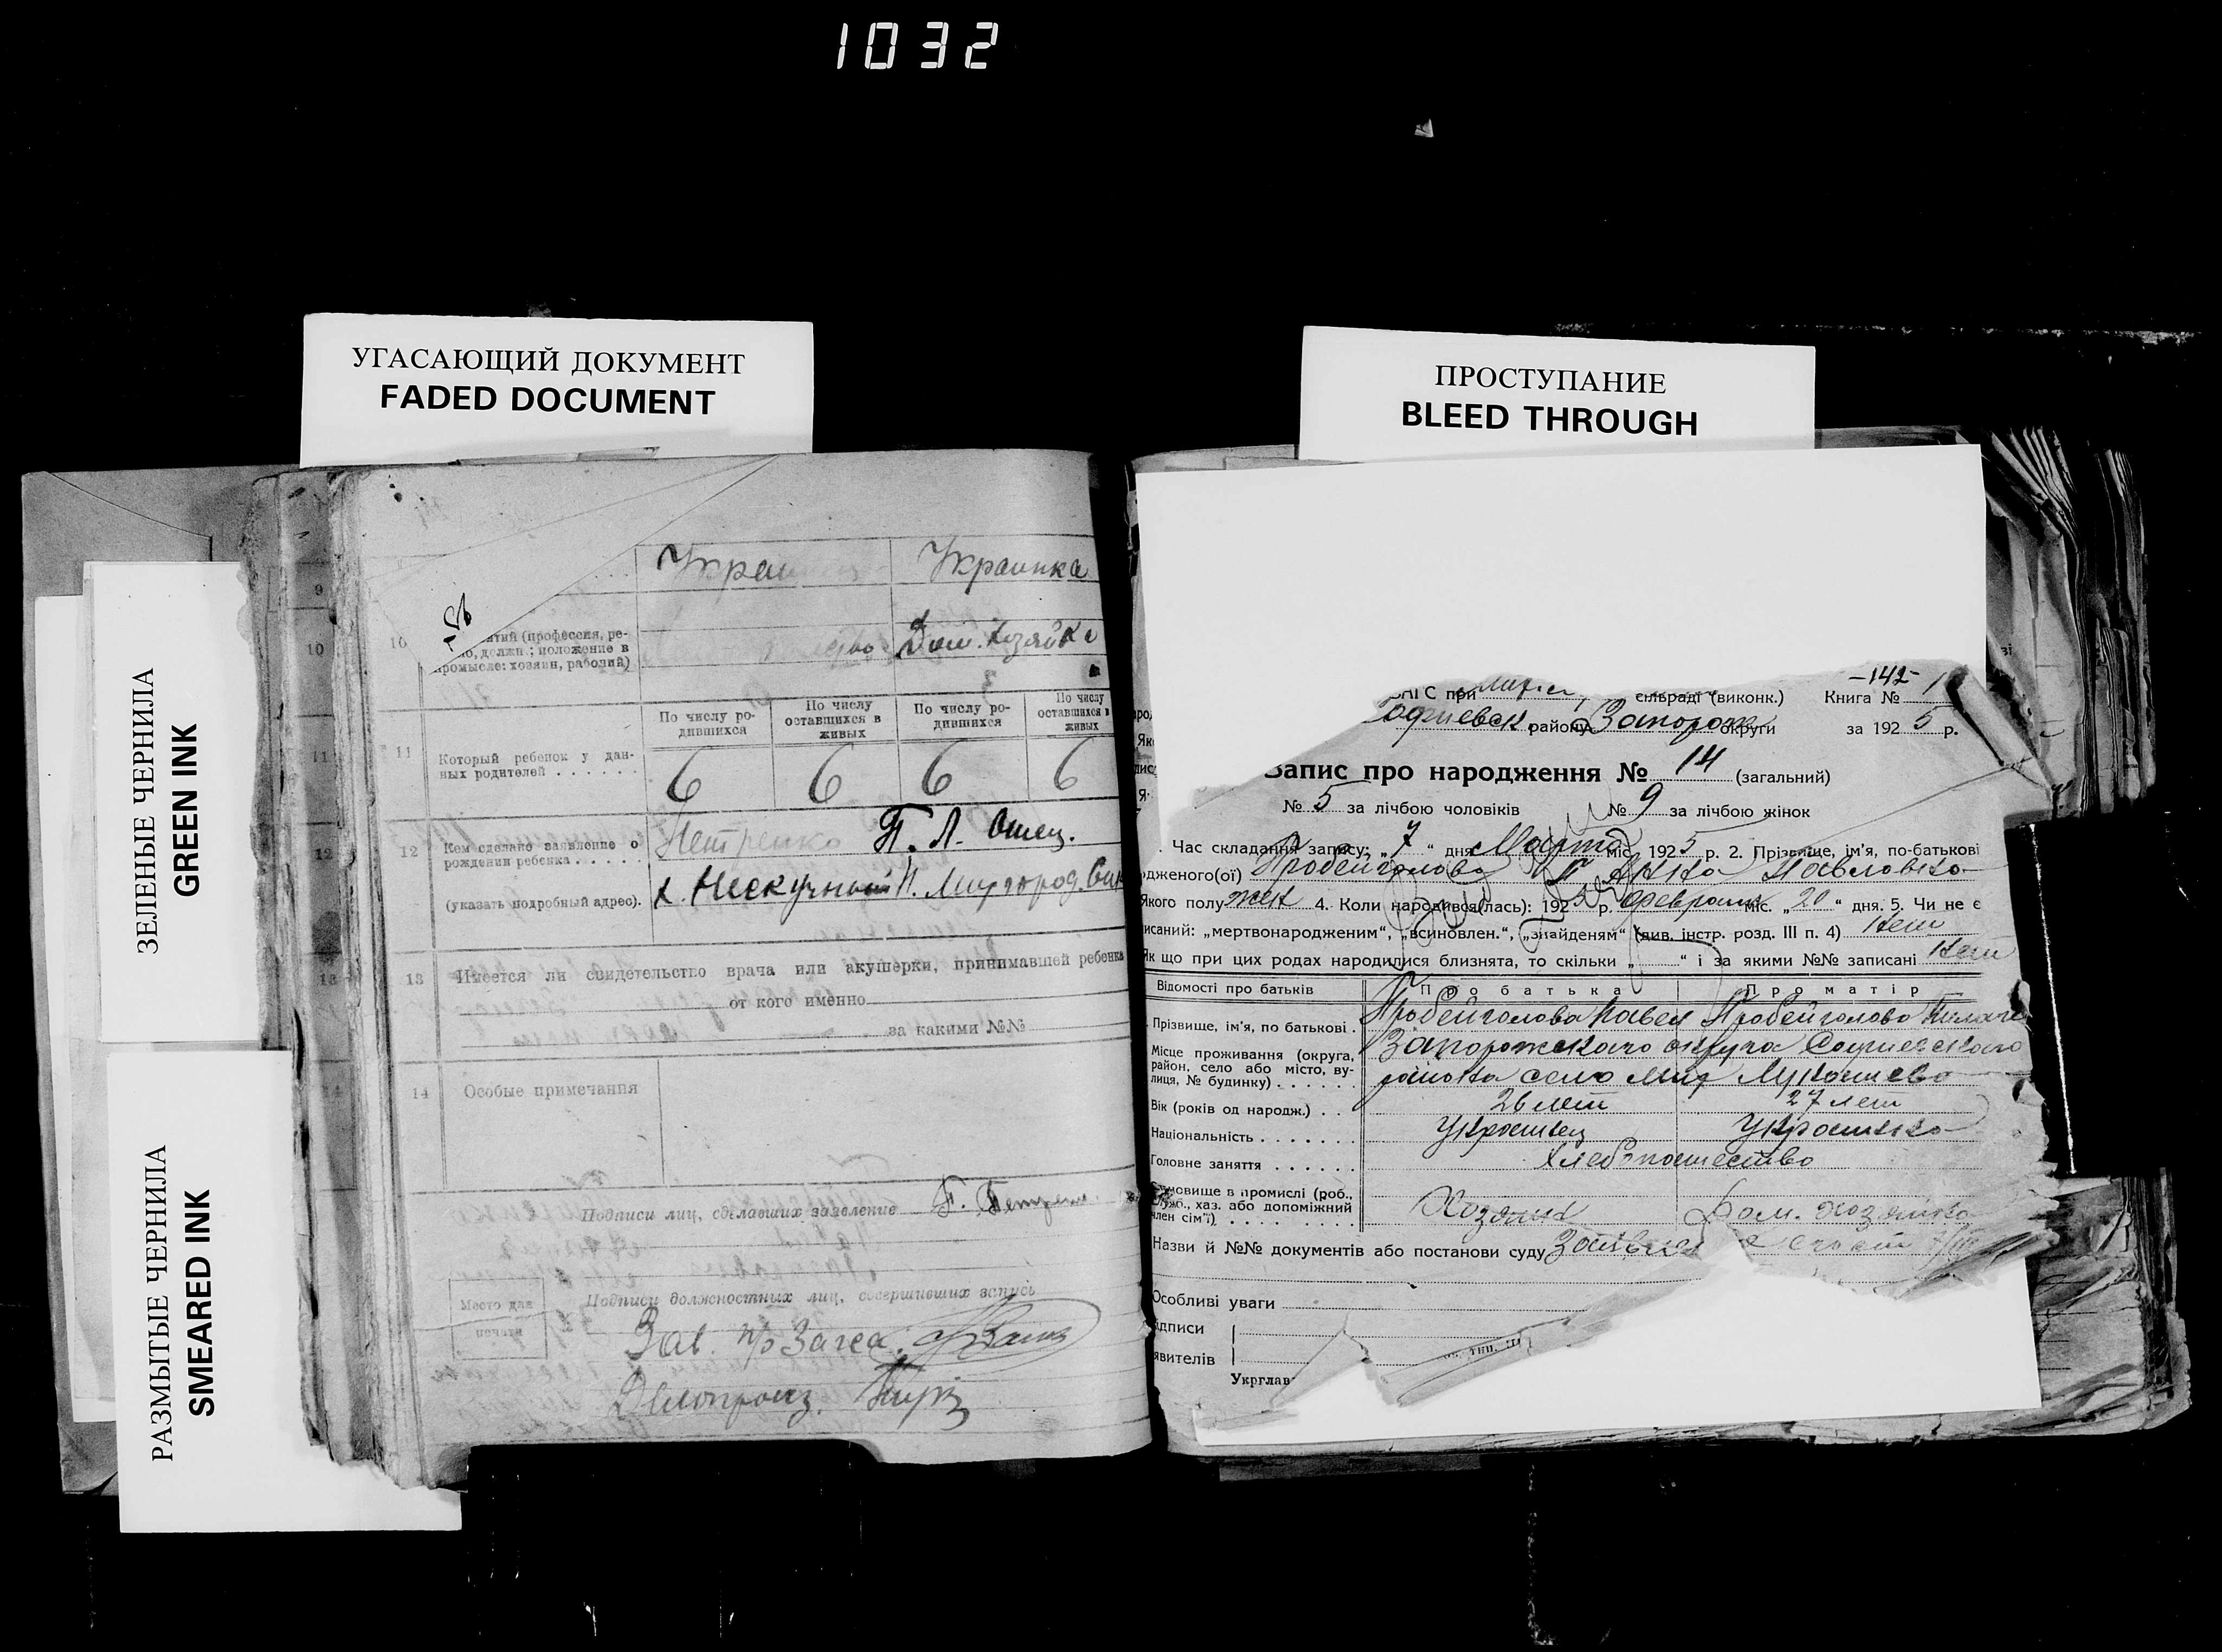 1032
УГАСАЮЩИЙ ДОКУМЕНТ
FADED DOCUMENT
ПРОСТУПАНИЕ
BLEED THROUGH
ЗЕЛЕНЫЕ ЧЕРНИЛА
GREEN INK
РАЗМЫТЫЕ ЧЕРНИЛА
SMEARED INK
9
10
11
12
13
14
Украинка
10
(профессия, ре-
должн.; положение в
промысле: хозяин, рабочий)
Дом. хозяйка
По числу ро-
дившихся
По числу
оставшихся в
живых
По числу ро-
дившихся
По числу
оставшихся в
живых
11 Который ребенок у дан-
ных родителей . . . . . .
6 6 6 6
12 Кем сделано заявление о
рождении ребенка . . . . .
Петренко П. Л. Отец.
(указать подробный адрес).
х. Нескучный
13 Имеется ли свидетельство врача или акушерки, принимавшей ребенка
от кого именно
за какими №№
14 Особые примечания
Подписи лиц, сделавших заявление П.
Место для
печати
Подписи должностных лиц, совершивших запись
Зав. п/р Загса
Делопроиз.
-142-
при сільраді (виконк.) Книга № 1
району Запорож округи за 1925 р.
Запис про народження № 14 (загальний)
№ 5 за лічбою чоловіків № 9 за лічбою жінок
Час складання запису: „7“ дня Марта міс. 1925 р. 2. Прізвище, ім'я, по-батькові
дженого(ої) Пробейголова
якого полу жен 4. Коли народився(лась): 1925 р. февраля міс. „20“ дня. 5. Чи не є
писаний: „мертвонародженим“, „всиновлен.“, „знайденям“ (див. інстр. розд. III п. 4) нет
Як що при цих родах народилися близнята, то скільки „ “ і за якими №№ записані нет
Відомості про батьків Про батька Про матір
Прізвище, ім'я, по батькові . Пробейголова Павел Пробейголова
Місце проживання (округа,
район, село або місто, ву-
лиця, № будинку) . . . . . .
Запорожскаго округа Софиевскаго
района село Лукашево
Вік (років од народж.) . . 26 лет 27 лет
Національність . . . . . . . Украинец Украинка
Головне заняття . . . . . . Хлебопашество
Становище в промислі (роб.,
служб., хаз. або допоміжний
член сім'ї) . . . . . . . . .
Хозяин Дом. хозяйка
Назви й №№ документів або постанови суду
Особливі уваги
ідписи
явителів
Укрглав